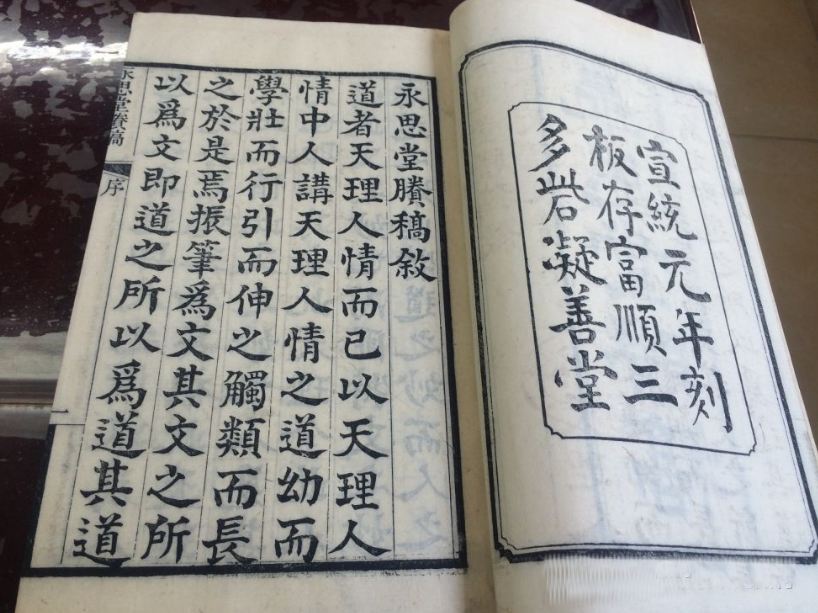 宣統元年刻
板存富順三
多砦凝善堂
永思堂賸稿敘
道者天理人情而已以天理人
情中人講天理人情之道幼而
學壯而行引而伸之觸類而長
之於是焉振筆爲文其文之所
以爲文即道之所以爲道其道
永思堂賸稿
序
一